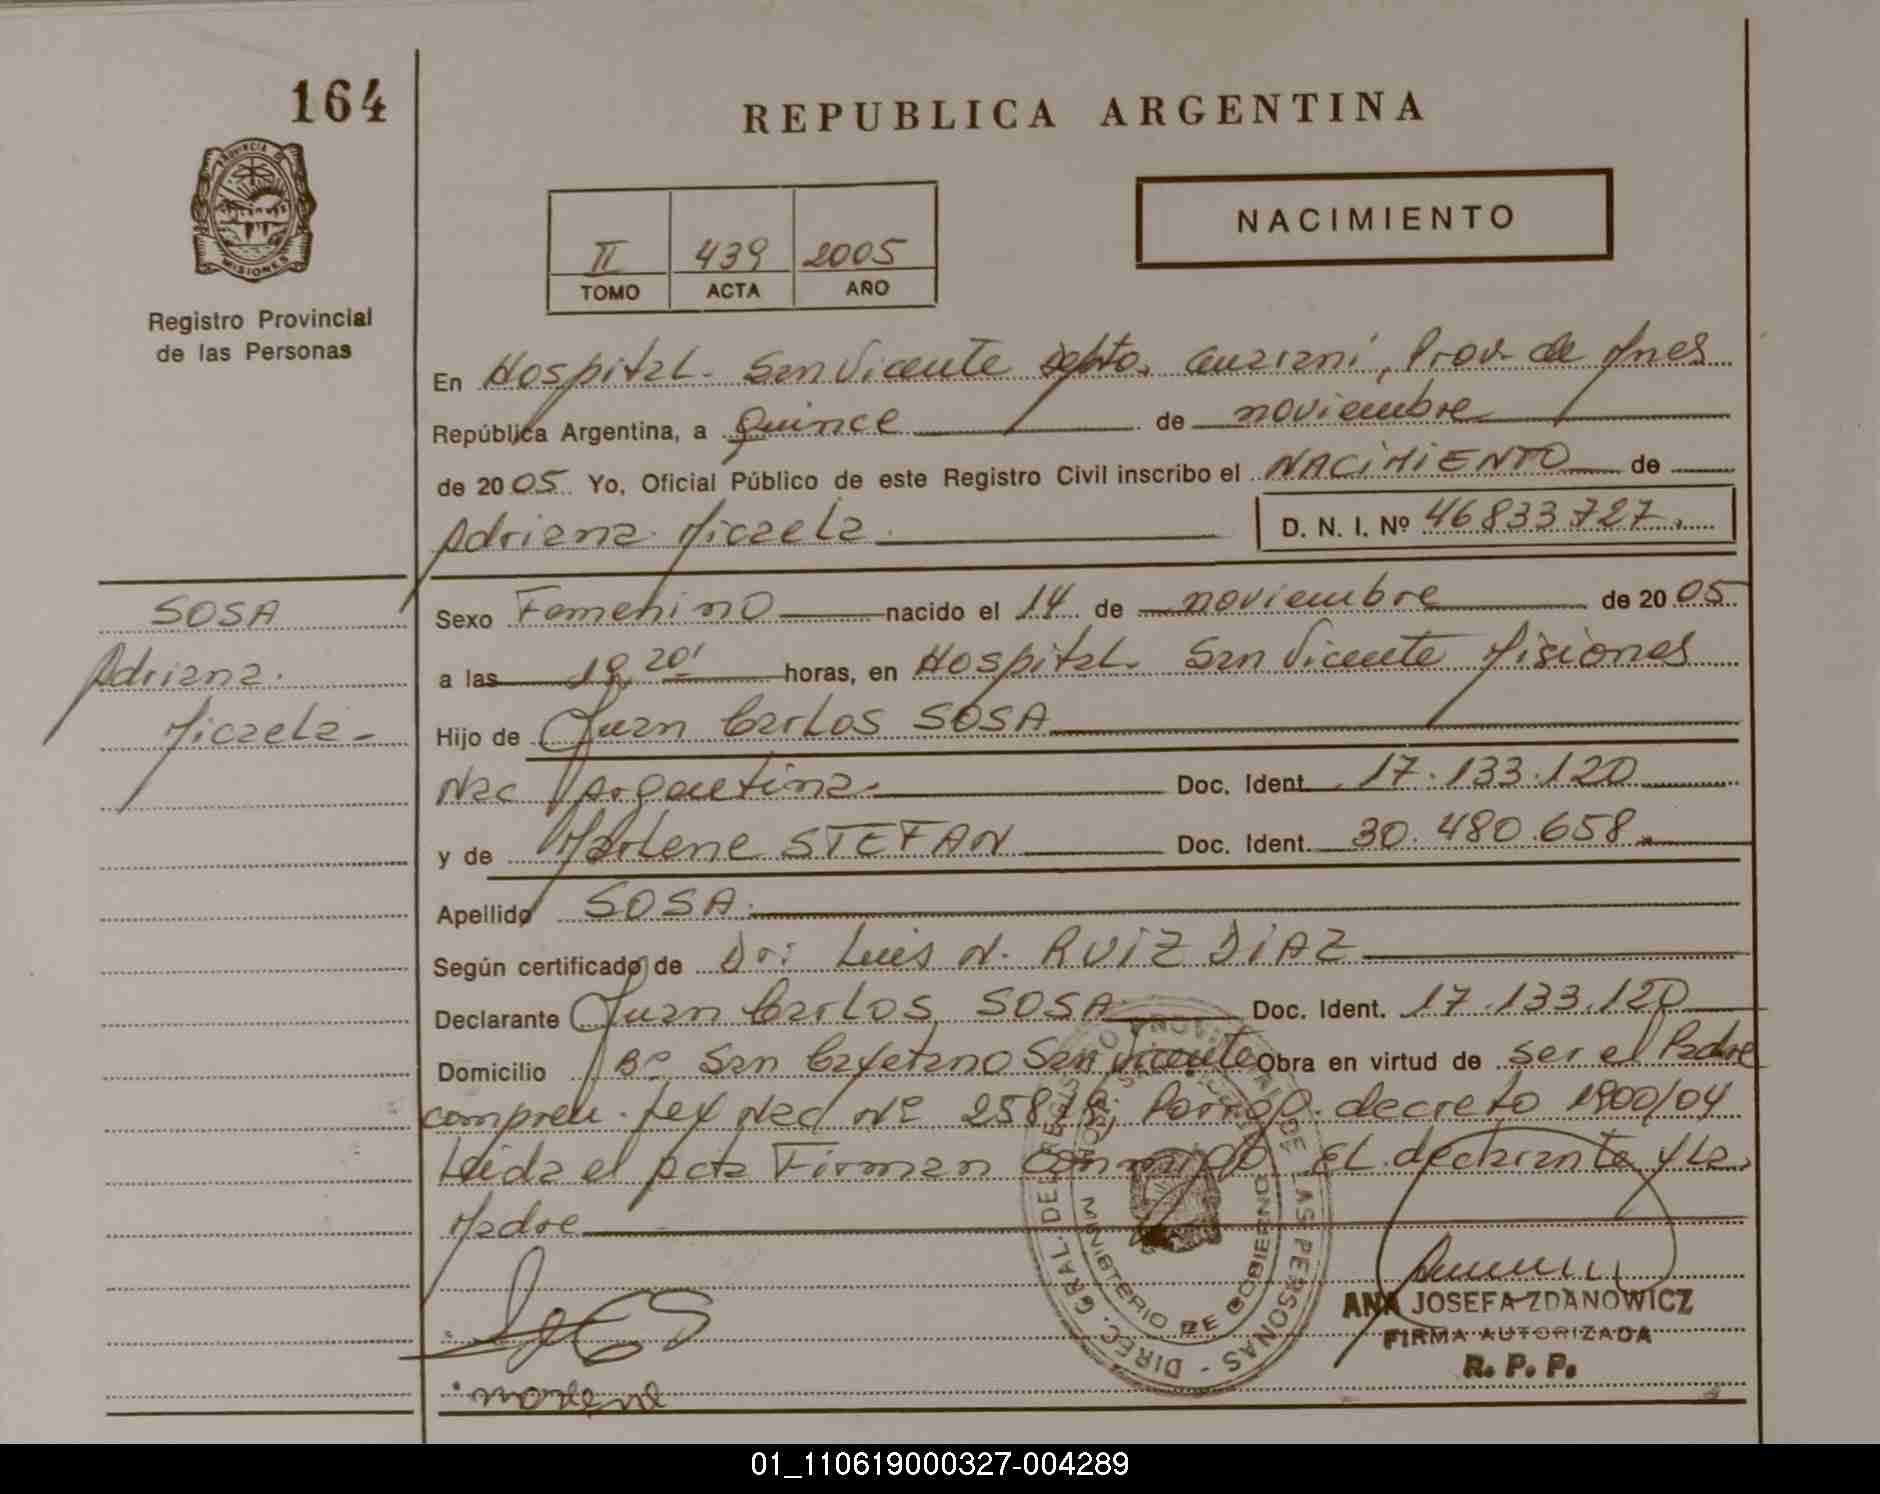 164
REPUBLICA ARGENTINA
PROVINCIA DE
MISIONES
Registro Provincial
de las Personas
II 439 2005
TOMO ACTA AÑO
NACIMIENTO
En Hospital San Vicente Depto. Guaraní, Prov. de Mnes
República Argentina, a Quince de noviembre
de 2005 Yo, Oficial Público de este Registro Civil inscribo el NACIMIENTO de
Adriana Micaela D. N. I. Nº 46833727
SOSA
Adriana
Micaela
Sexo Femenino nacido el 14 de noviembre de 2005
a las 20' horas, en Hospital San Vicente Misiones
Hijo de Juan Carlos SOSA
Nac Argentina Doc. Ident. 17.133.120
y de Marlene STEFAN Doc. Ident. 30.480.658
Apellido SOSA
Según certificado de Dr: Luis N. RUIZ DIAZ
Declarante Juan Carlos SOSA Doc. Ident. 17.133.120
Domicilio Bº San Cayetano San Vicente Obra en virtud de ser el Padre
Ley Nac Nº decreto 1900/04
Leida el acta Firman conmigo EL declarante y La
Madre
MINISTERIO DE GOBIERNO
DIREC. GRAL. DE PERSONAS
marlene
ANA JOSEFA ZDANOWICZ
FIRMA AUTORIZADA
R. P. P.
01_110619000327-004289